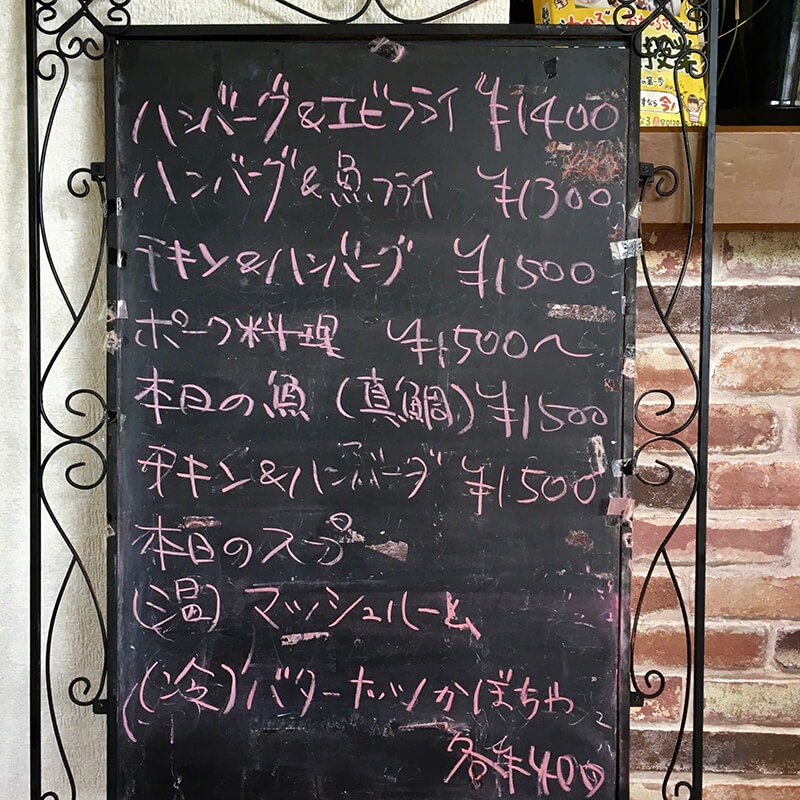 ハンバーグ&エビフライ ¥1400
ハンバーグ&魚フライ ¥1300
チキン&ハンバーグ ¥1500
ポーク料理 ¥1500〜
本日の魚(真鯛)¥1500
チキン&ハンバーグ ¥1500
本日のスープ
(温)マッシュルーム
(冷)バターナッツかぼちゃ
各¥400
授業
今!